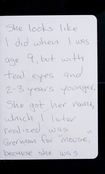 She looks like
I did when I was
age 9, but with
teal eyes and
2-3 years younger.
She got her name,
which I later
realised was
German for "mouse,
because she was